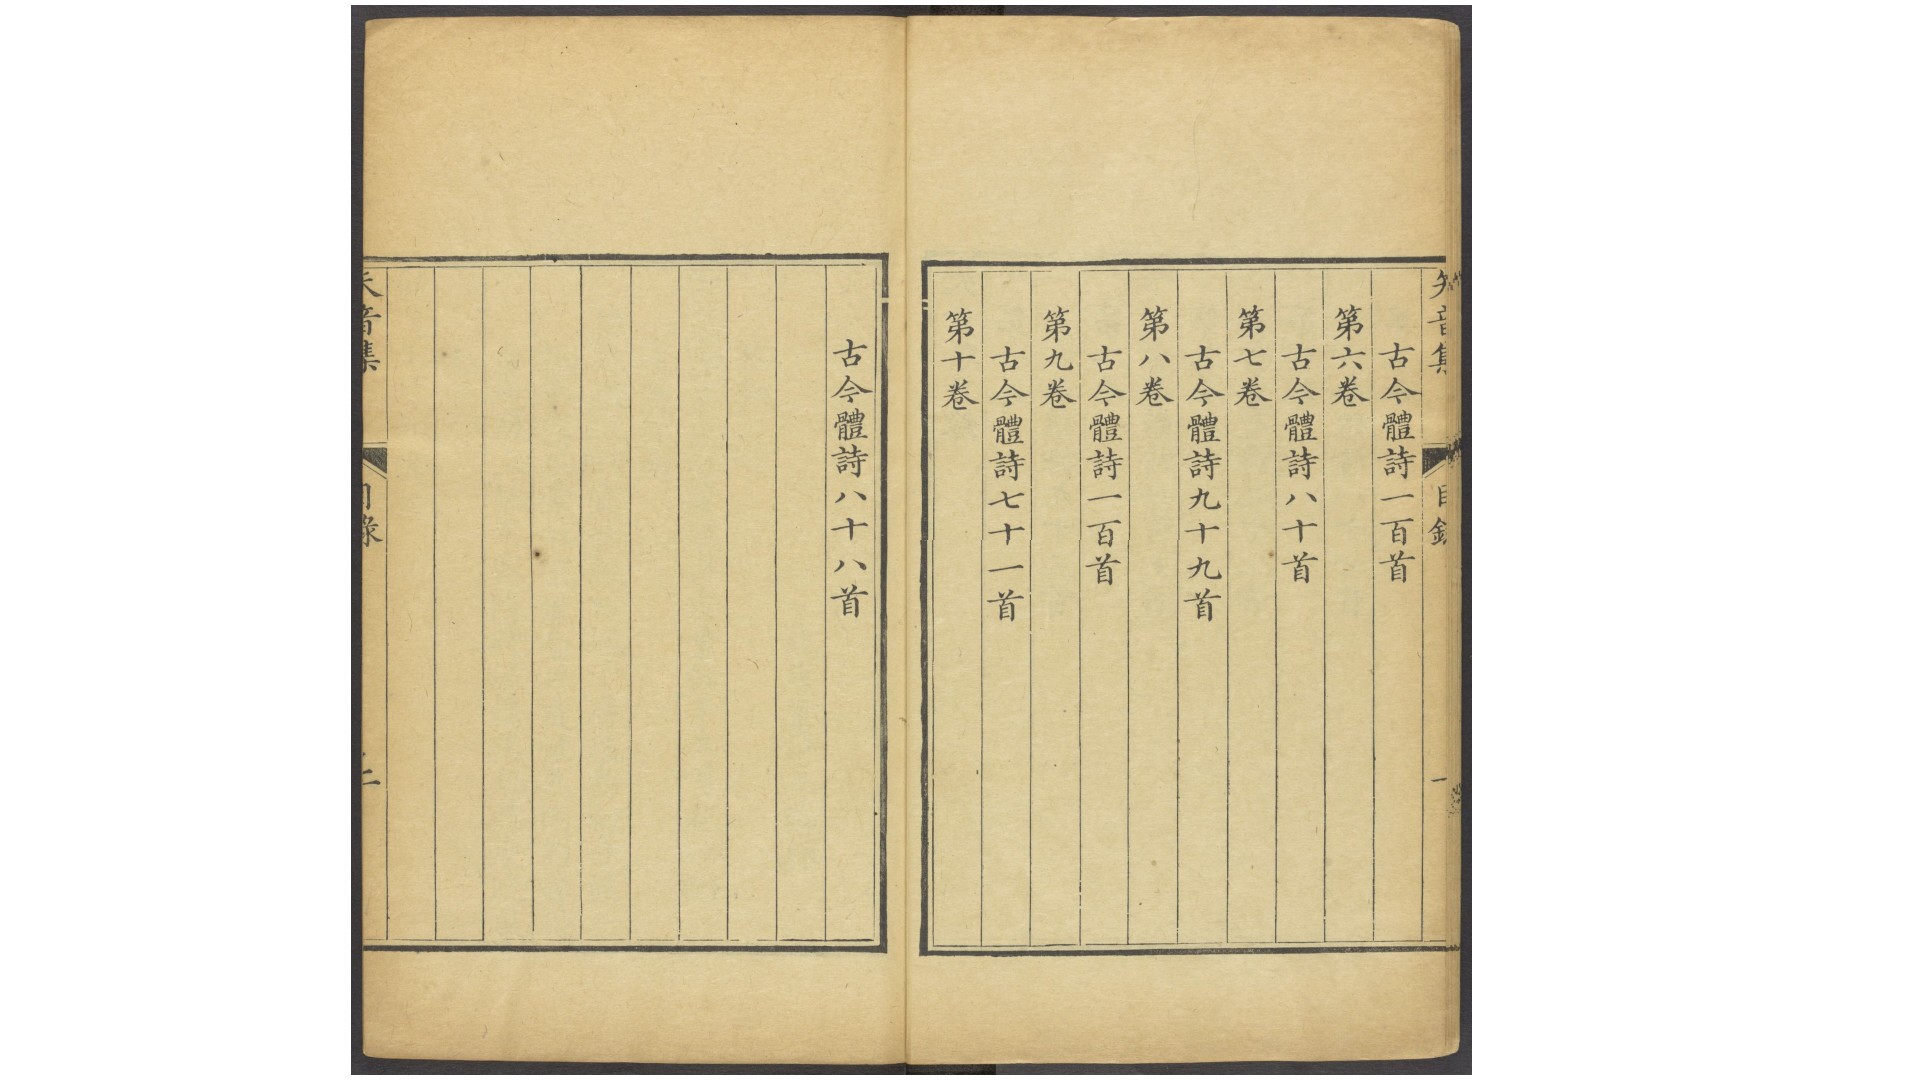 矢音集
目錄
一
古今體詩一百首
第六卷
古今體詩八十首
第七卷
古今體詩九十九首
第八卷
古今體詩一百首
第九卷
古今體詩七十一首
第十卷
古今體詩八十八首
矢音集
目錄
二